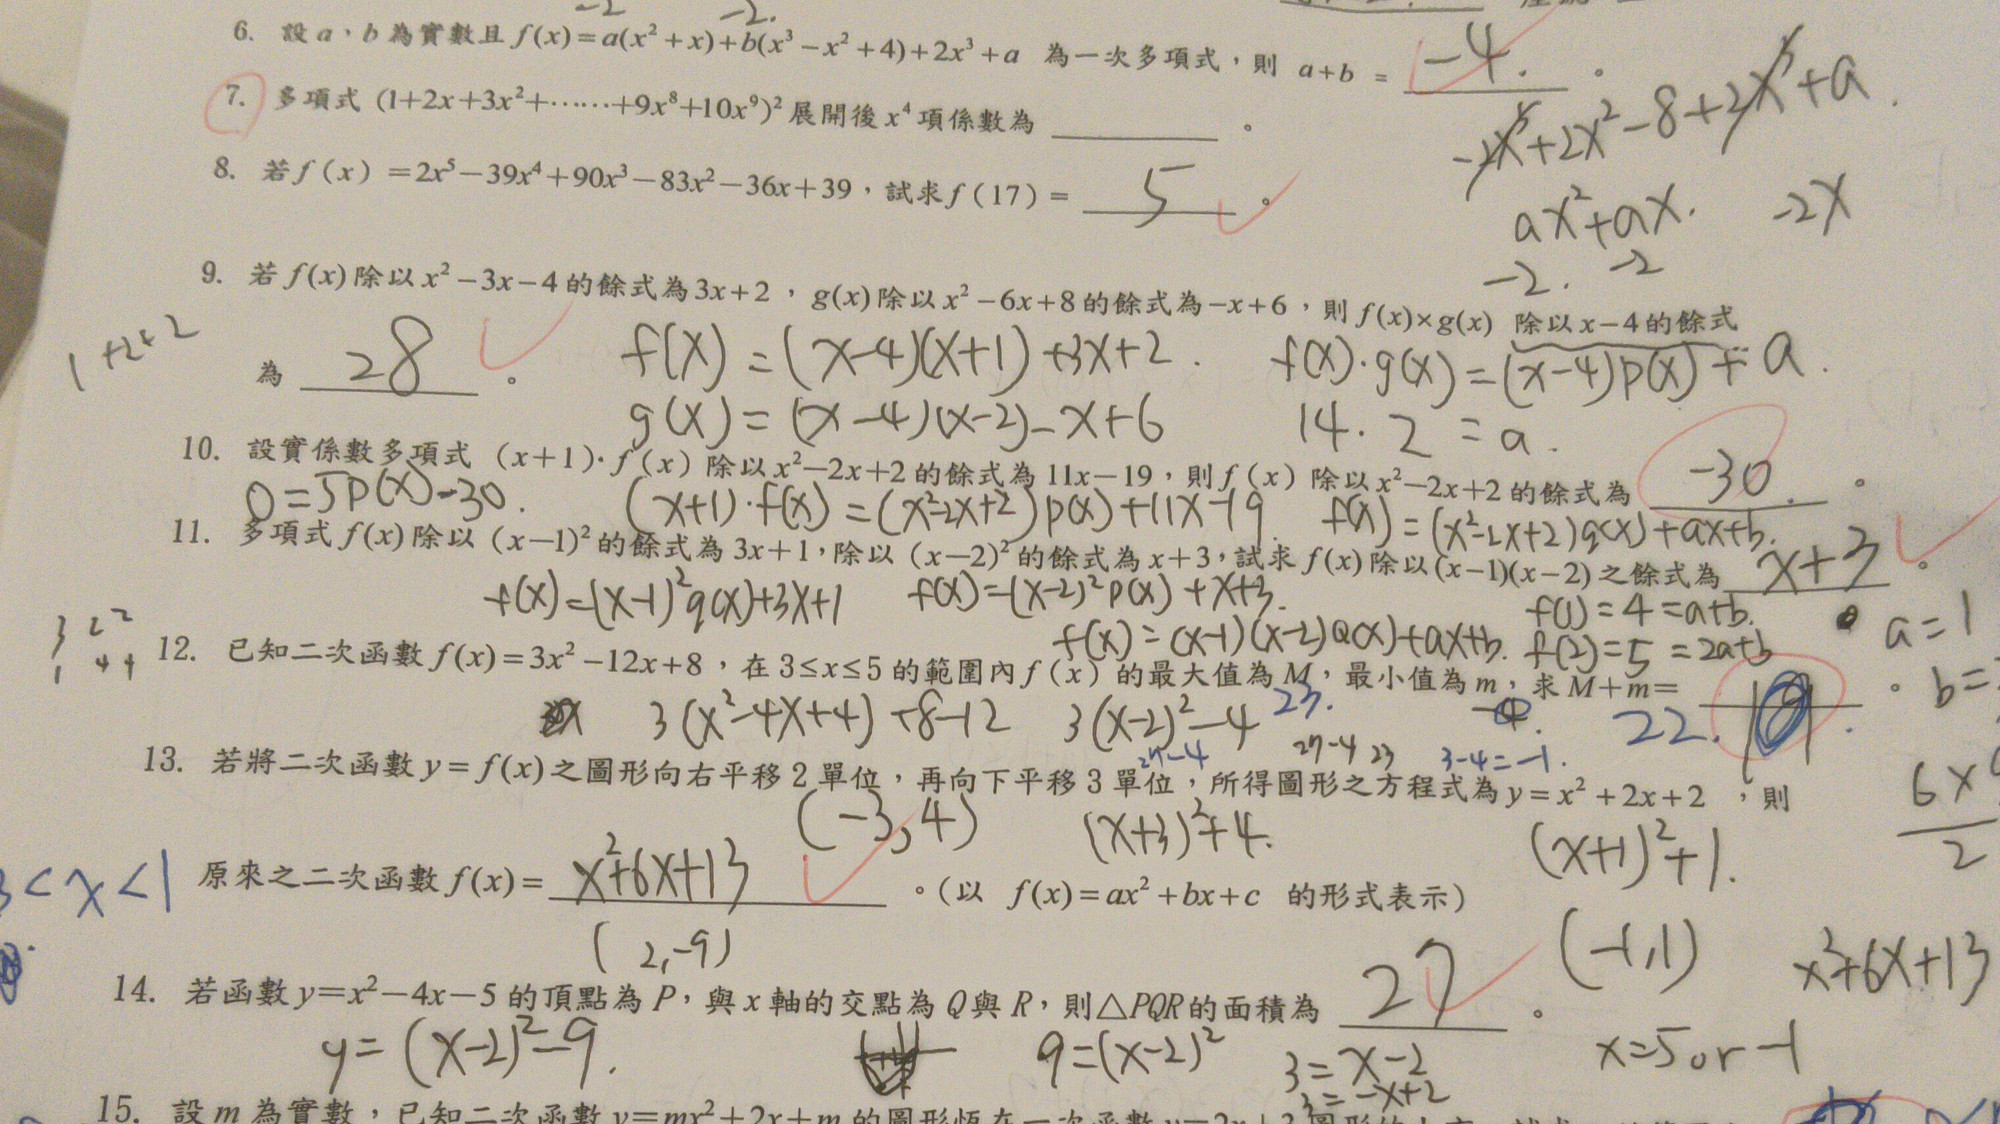 -2 -2.
6. 設 a、b 為實數且 f(x)=a(x²+x)+b(x³-x²+4)+2x³+a 為一次多項式，則 a+b = -4. 。
-2x³+2x²-8+2x³+a.
7. 多項式 (1+2x+3x²+……+9x⁸+10x⁹)² 展開後 x⁴ 項係數為 ________ 。
8. 若 f(x)=2x⁵-39x⁴+90x³-83x²-36x+39，試求 f(17)= 5 。
ax²+ax. -2x
-2. -2
9. 若 f(x) 除以 x²-3x-4 的餘式為 3x+2，g(x) 除以 x²-6x+8 的餘式為 -x+6，則 f(x)×g(x) 除以 x-4 的餘式
1+2+2
為 28 。 f(x)=(x-4)(x+1)+3x+2. f(x)·g(x)=(x-4)p(x)+a.
g(x)=(x-4)(x-2)-x+6 14.2=a.
10. 設實係數多項式 (x+1)·f(x) 除以 x²-2x+2 的餘式為 11x-19，則 f(x) 除以 x²-2x+2 的餘式為 -30. 。
0=5p(x)-30. (x+1)·f(x)=(x²-2x+2)p(x)+11x-19. f(x)=(x²-2x+2)q(x)+ax+b.
11. 多項式 f(x) 除以 (x-1)² 的餘式為 3x+1，除以 (x-2)² 的餘式為 x+3，試求 f(x) 除以 (x-1)(x-2) 之餘式為 x+3 。
f(x)=(x-1)²q(x)+3x+1 f(x)=(x-2)²p(x)+x+3. f(1)=4=a+b. a=1
3 2 2
f(x)=(x-1)(x-2)Q(x)+ax+b. f(2)=5=2a+b
1 4 4
12. 已知二次函數 f(x)=3x²-12x+8，在 3≤x≤5 的範圍內 f(x) 的最大值為 M，最小值為 m，求 M+m= 。
b=
3(x²-4x+4)+8-12 3(x-2)²-4 23. 22.
27-4 27-4 23 3-4=-1.
13. 若將二次函數 y=f(x) 之圖形向右平移 2 單位，再向下平移 3 單位，所得圖形之方程式為 y=x²+2x+2 ，則
(-3,4) (x+3)²+4. (x+1)²+1.
2
<x<1
原來之二次函數 f(x)= x²+6x+13 。(以 f(x)=ax²+bx+c 的形式表示)
(2,-9) (-1,1) x²+6x+13
14. 若函數 y=x²-4x-5 的頂點為 P，與 x 軸的交點為 Q 與 R，則△PQR的面積為 27 。
y=(x-2)²-9. 9=(x-2)² 3=x-2 x=5 or -1
3=-x+2
15. 設 m 為實數，已知二次函數 y=mx²+2x+m 的圖形恆在一次函數